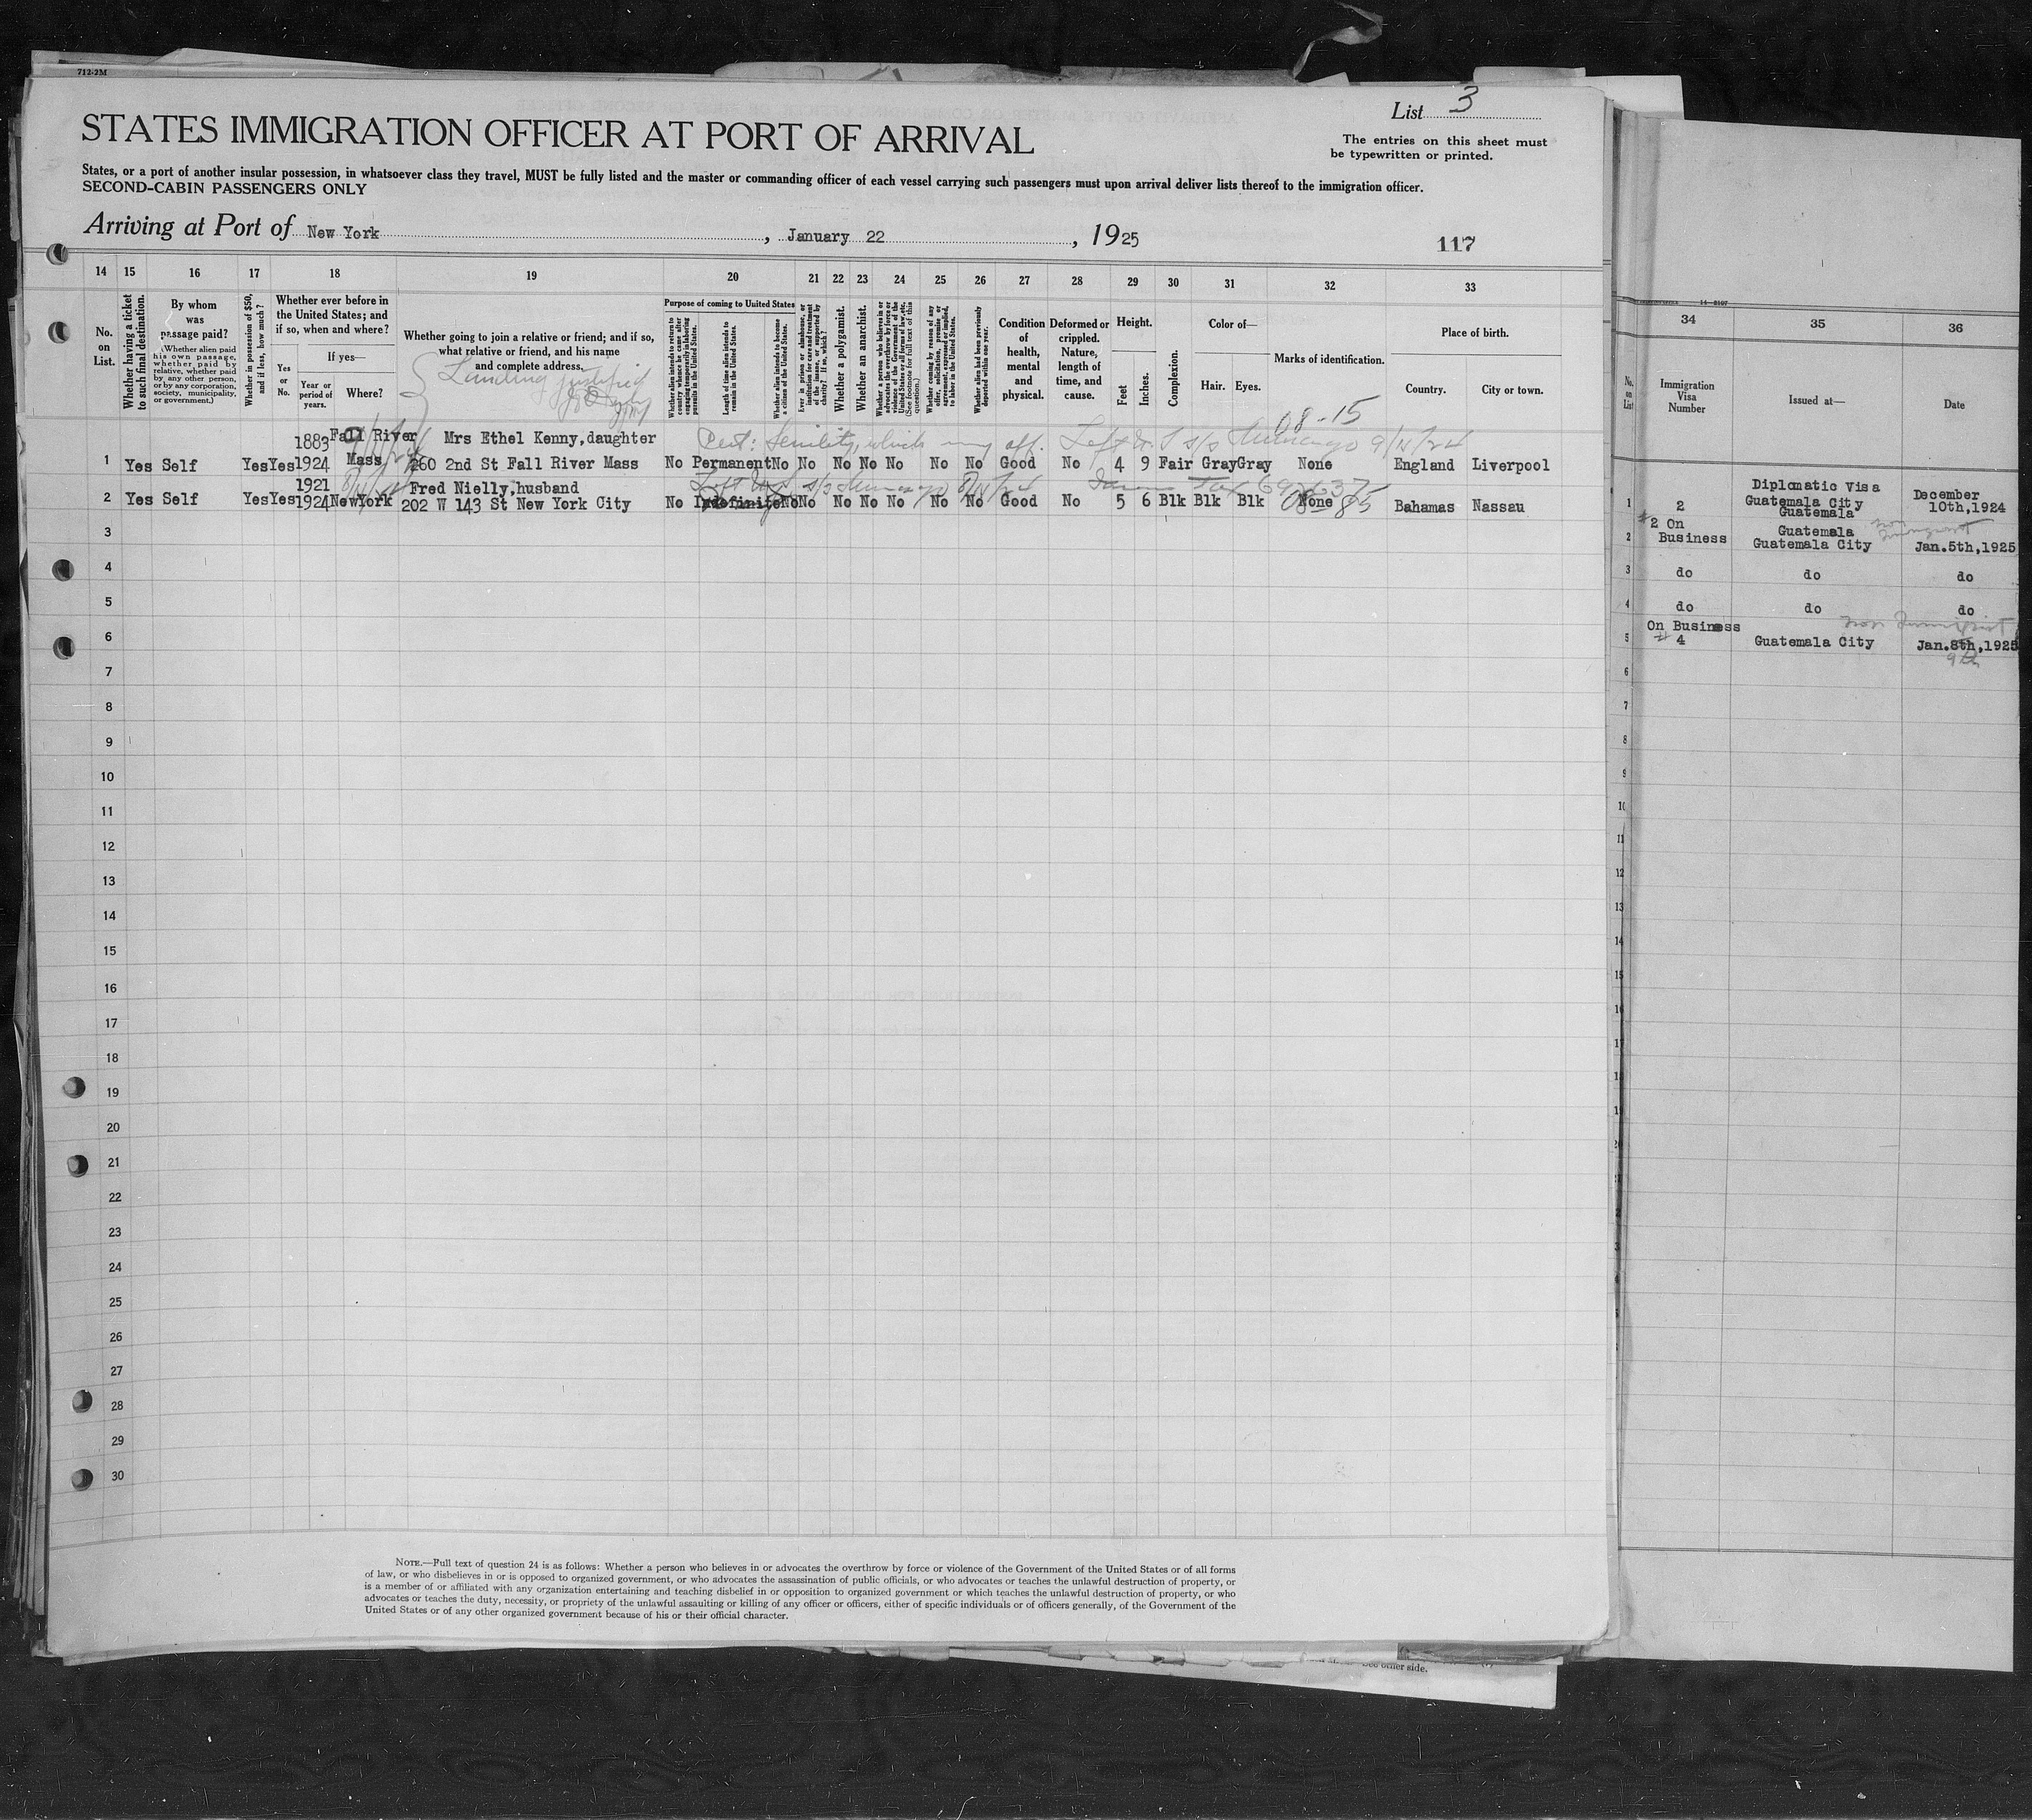 712-2M
List 3
STATES IMMIGRATION OFFICER AT PORT OF ARRIVAL
The entries on this sheet must
be typewritten or printed.
States, or a port of another insular possession, in whatsoever class they travel, MUST be fully listed and the master or commanding officer of each vessel carrying such passengers must upon arrival deliver lists thereof to the immigration officer.
SECOND-CABIN PASSENGERS ONLY
Arriving at Port of New York, January 22, 1925
117
14 15 16 17 18 19 20 21 22 23 24 25 26 27 28 29 30 31 32 33
No. on List.
Whether having a ticket to such final destination.
By whom was passage paid?
(Whether alien paid his own passage, whether paid by relative, whether paid by any other person, or by any corporation, society, municipality, or government.)
Whether in possession of $50, and if less, how much?
Whether ever before in the United States; and if so, when and where?
Yes or No.
If yes—
Year or period of years.
Where?
Whether going to join a relative or friend; and if so, what relative or friend, and his name and complete address.
Landing justified
Purpose of coming to United States
Whether alien intends to return to country whence he came after engaging temporarily in laboring pursuits in the United States.
Length of time alien intends to remain in the United States.
Whether alien intends to become a citizen of the United States.
Ever in prison or almshouse, or institution for care and treatment of the insane, or supported by charity? If so, which?
Whether a polygamist.
Whether an anarchist.
Whether a person who believes in or advocates the overthrow by force or violence of the Government of the United States or all forms of law, etc. (See footnote for full text of this question.)
Whether coming by reason of any offer, solicitation, promise or agreement, expressed or implied, to labor in the United States.
Whether alien had been previously deported within one year.
Condition of health, mental and physical.
Deformed or crippled. Nature, length of time, and cause.
Height.
Feet Inches.
Complexion.
Color of—
Hair. Eyes.
Marks of identification.
Place of birth.
Country. City or town.
08-15
Cert: Senility, which may aff. Left
9/14/24
1883 Fall River Mrs Ethel Kenny, daughter
1 Yes Self Yes Yes 1924 Mass 260 2nd St Fall River Mass No Permanent No No No No No No No Good No 4 9 Fair Gray Gray None England Liverpool
1921 Fred Nielly, husband
2 Yes Self Yes Yes 1924 NewYork 202 W 143 St New York City No Indefinite No No No No No No No Good No 5 6 Blk Blk Blk None Bahamas Nassau
3
4
5
6
7
8
9
10
11
12
13
14
15
16
17
18
19
20
21
22
23
24
25
26
27
28
29
30
NOTE.—Full text of question 24 is as follows: Whether a person who believes in or advocates the overthrow by force or violence of the Government of the United States or of all forms
of law, or who disbelieves in or is opposed to organized government, or who advocates the assassination of public officials, or who advocates or teaches the unlawful destruction of property, or
is a member of or affiliated with any organization entertaining and teaching disbelief in or opposition to organized government or which teaches the unlawful destruction of property, or who
advocates or teaches the duty, necessity, or propriety of the unlawful assaulting or killing of any officer or officers, either of specific individuals or of officers generally, of the Government of the
United States or of any other organized government because of his or their official character.
34 35 36
No. on List
Immigration Visa Number
Issued at—
Date
Diplomatic Visa
1 2 Guatemala City December 10th,1924
Guatemala
#2 On Guatemala
2 Business Guatemala City Jan.5th,1925
3 do do do
4 do do do
On Business
5 # 4 Guatemala City Jan.8th,1925
9th
6
7
8
9
10
11
12
13
14
15
16
other side.